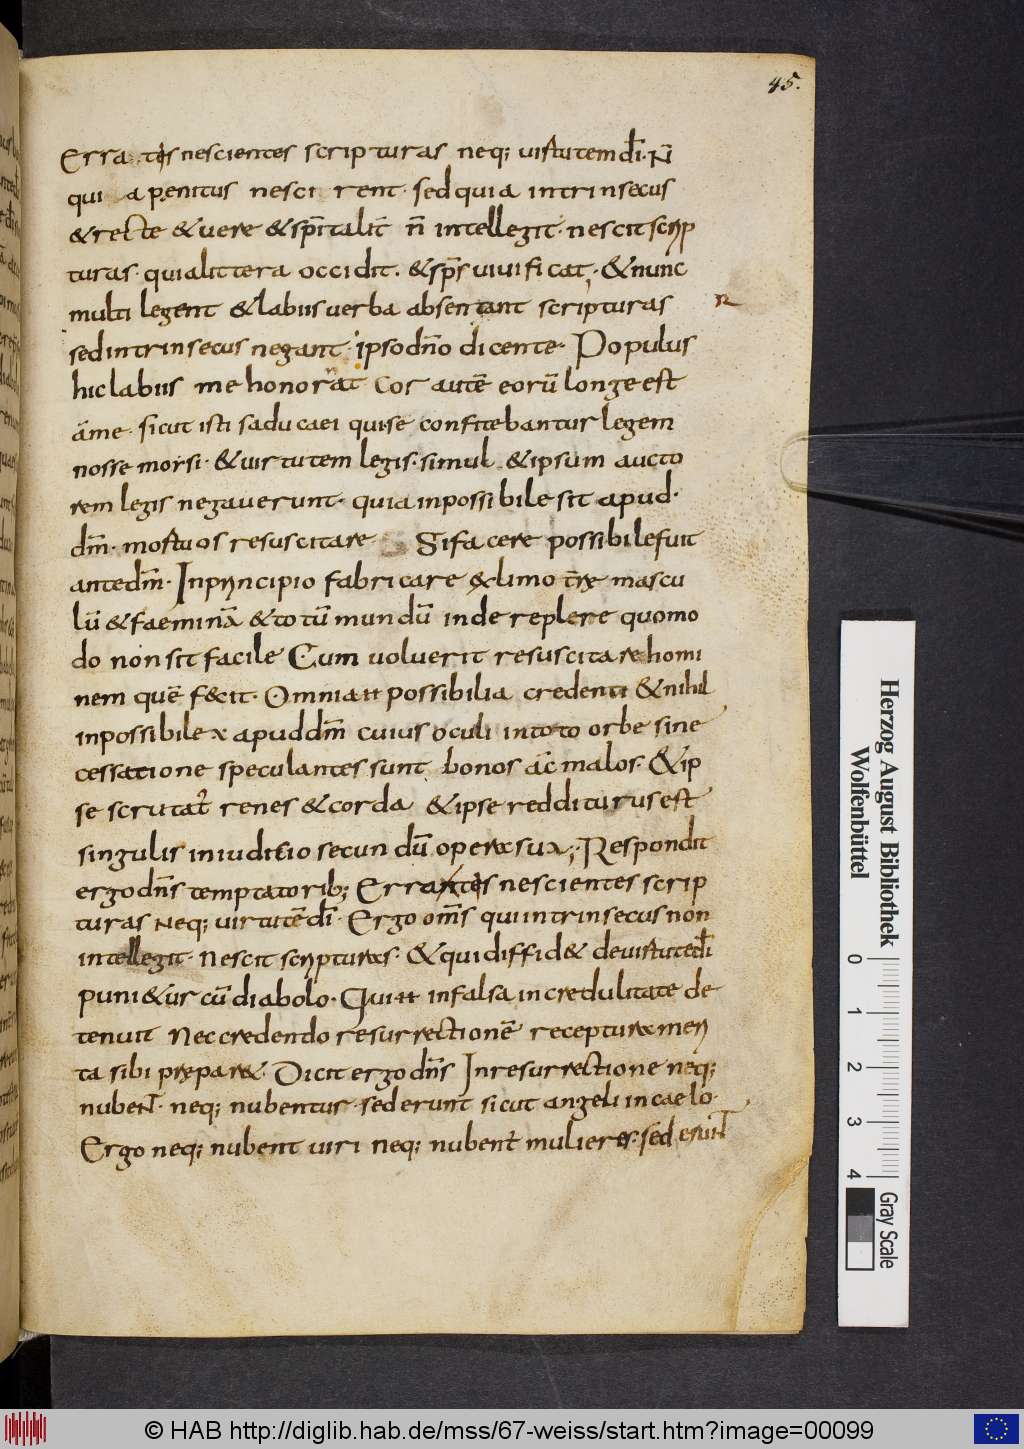 45.
Erra tis nescientes scripturas neq; uirtutem dī· N̄
qui a penitus nesci rent· sed quia intrinsecus
& recte & uere & sp̄italit̄ n̄ intellegit· nescit scrip
turas· quia littera occidit· & sp̄s uiuificat; & nunc
multi legent & labiis uerba absentant scripturas
sed intrinsecus negant· ipso dn̄o dicente· Populus
hic labiis me honorat cor autē eorū longe est
ame· sicut isti saducaei qui se confitebantur legem
nosse morsi· & uirtutem legis· simul & ipsum aucto
rem legis negauerunt· quia inpossibile sit apud·
dm̄· mortuos resuscitare Si facere possibile fuit
ante dm̄· In principio fabricare & limo terrę mascu
lū & faeminā & totū mundū inde replere quomo
do non sit facile Cum uoluerit resuscitare homi
nem quē fecit· Omnia possibilia credenti & nihil
inpossibile apud dm̄ cuius oculi in toto orbe sine
cessatione speculantes sunt bonos ac malos· & ip
se scrutat̄ renes & corda & ipse redditurus est
singulis in iuditio secundū opera sua; Respondit
ergo dn̄s temptatorib; Errantis nescientes scrip
turas Neq; uirtutē dī· Ergo om̄s qui intrinsecus non
intellegit· Nescit scripturas· & qui diffid& de uirtute dī
puni&ur cū diabolo· Qui in falsa incredulitate de
tenuit Nec credendo resurrectionē recepturae meri
ta sibi pręparat· Dicit ergo dn̄s In resurrectione neq;
nubent· neq; nubentur· sed erunt sicut angeli in caelo·
Ergo neq; nubent uiri neq; nubent mulieres· sed erunt
Herzog August Bibliothek
Wolfenbüttel
0 1 2 3 4
Gray Scale
© HAB http://diglib.hab.de/mss/67-weiss/start.htm?image=00099